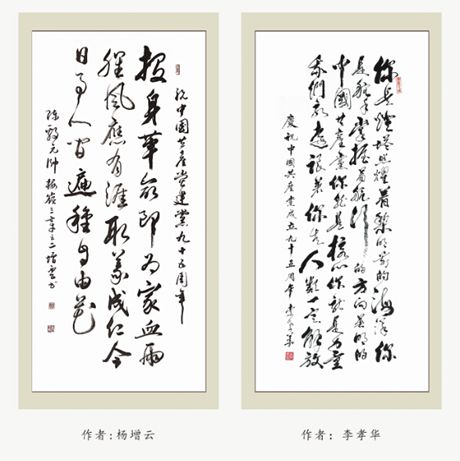 祝中國共產党建黨九十五周年
投身革命即为家血雨
腥风應有涯取义成仁今
日事人间遍種自由花
陈毅元帅梅岭三章之三增云书
作者:杨增云
你是燈塔照耀着黎明前的海洋你
是舵手掌握着航行的方向英明的
中國共產黨你就是核心你就是力量
我們永遠跟着你走人類一定解放
慶祝中國共產党成立九十五周年李孝華
作者：李孝华